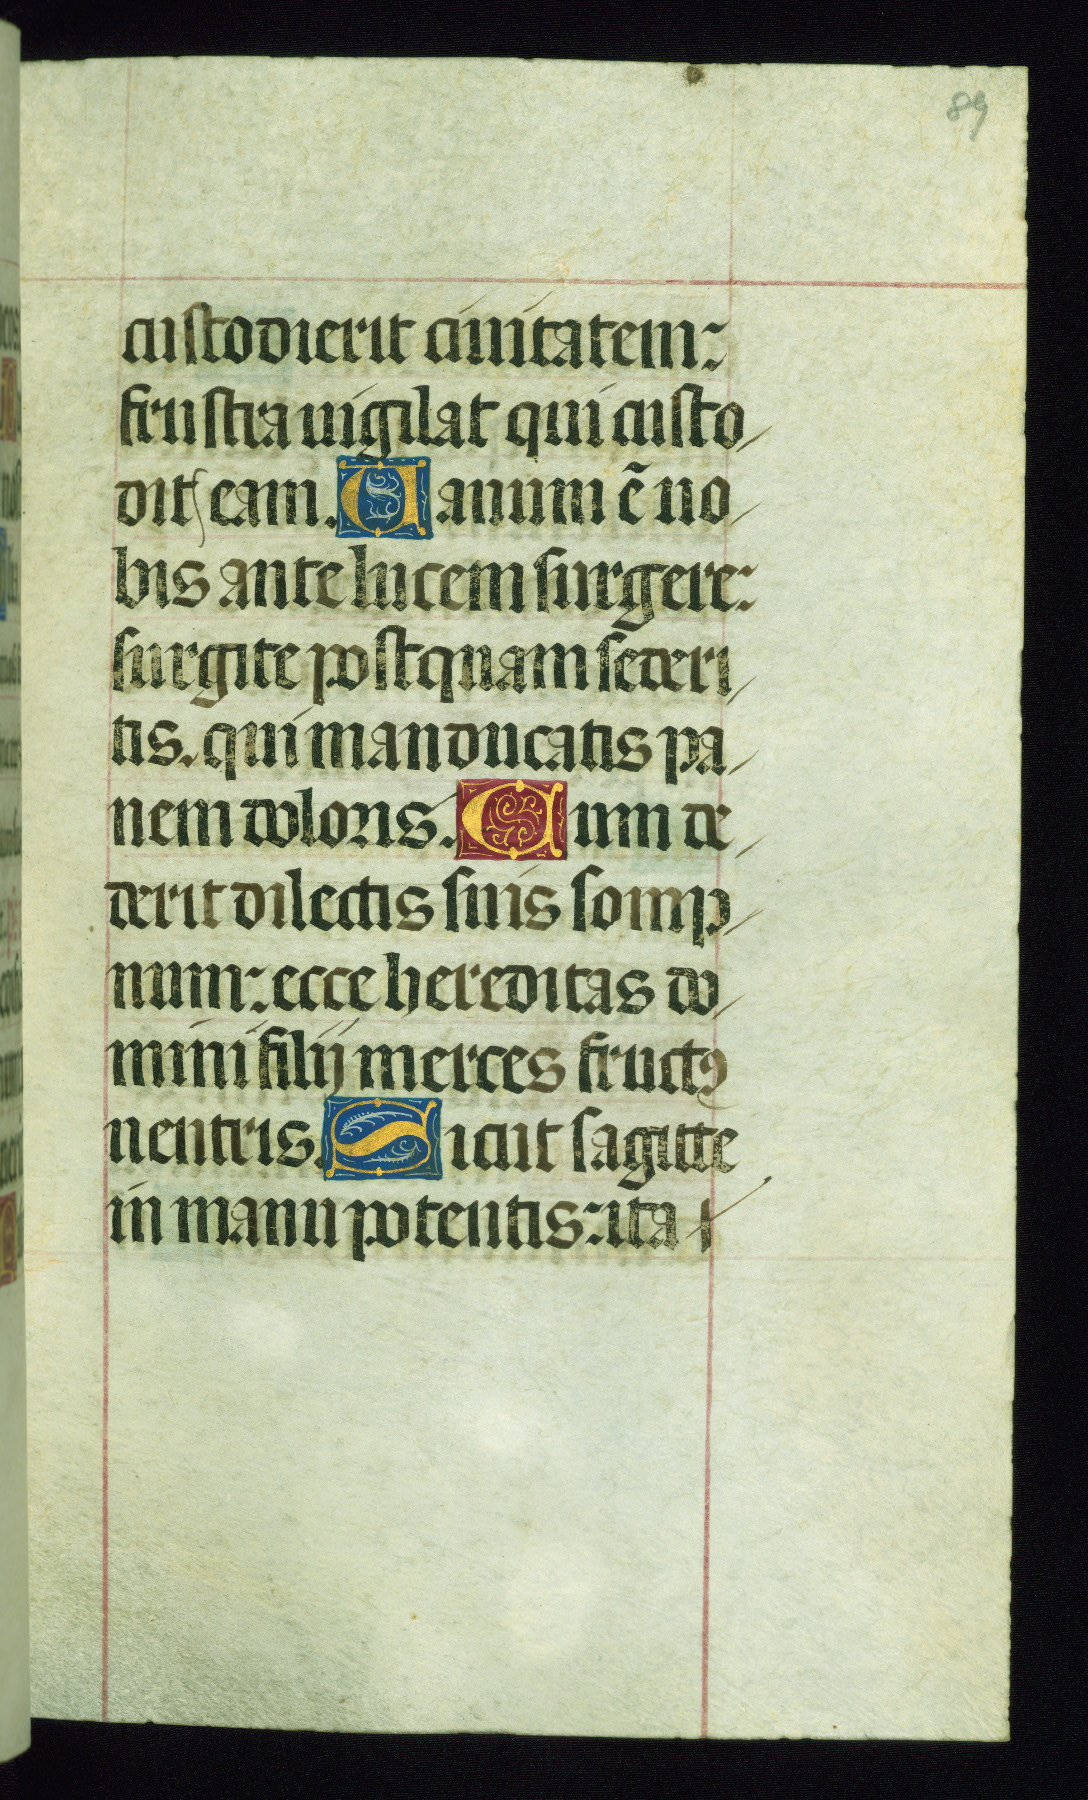 89
custodierit ciuitatem:
frustra uigilat qui custo/
dit eam. Uanum ē uo/
bis ante lucem surgere:
surgite postquam sederi/
tis. qui manducatis pa/
nem doloris. Cum de/
derit dilectis suis somp/
num: ecce hereditas do/
mini filij merces fructꝰ
uentris. Sicut sagitte
in manu potentis: ita